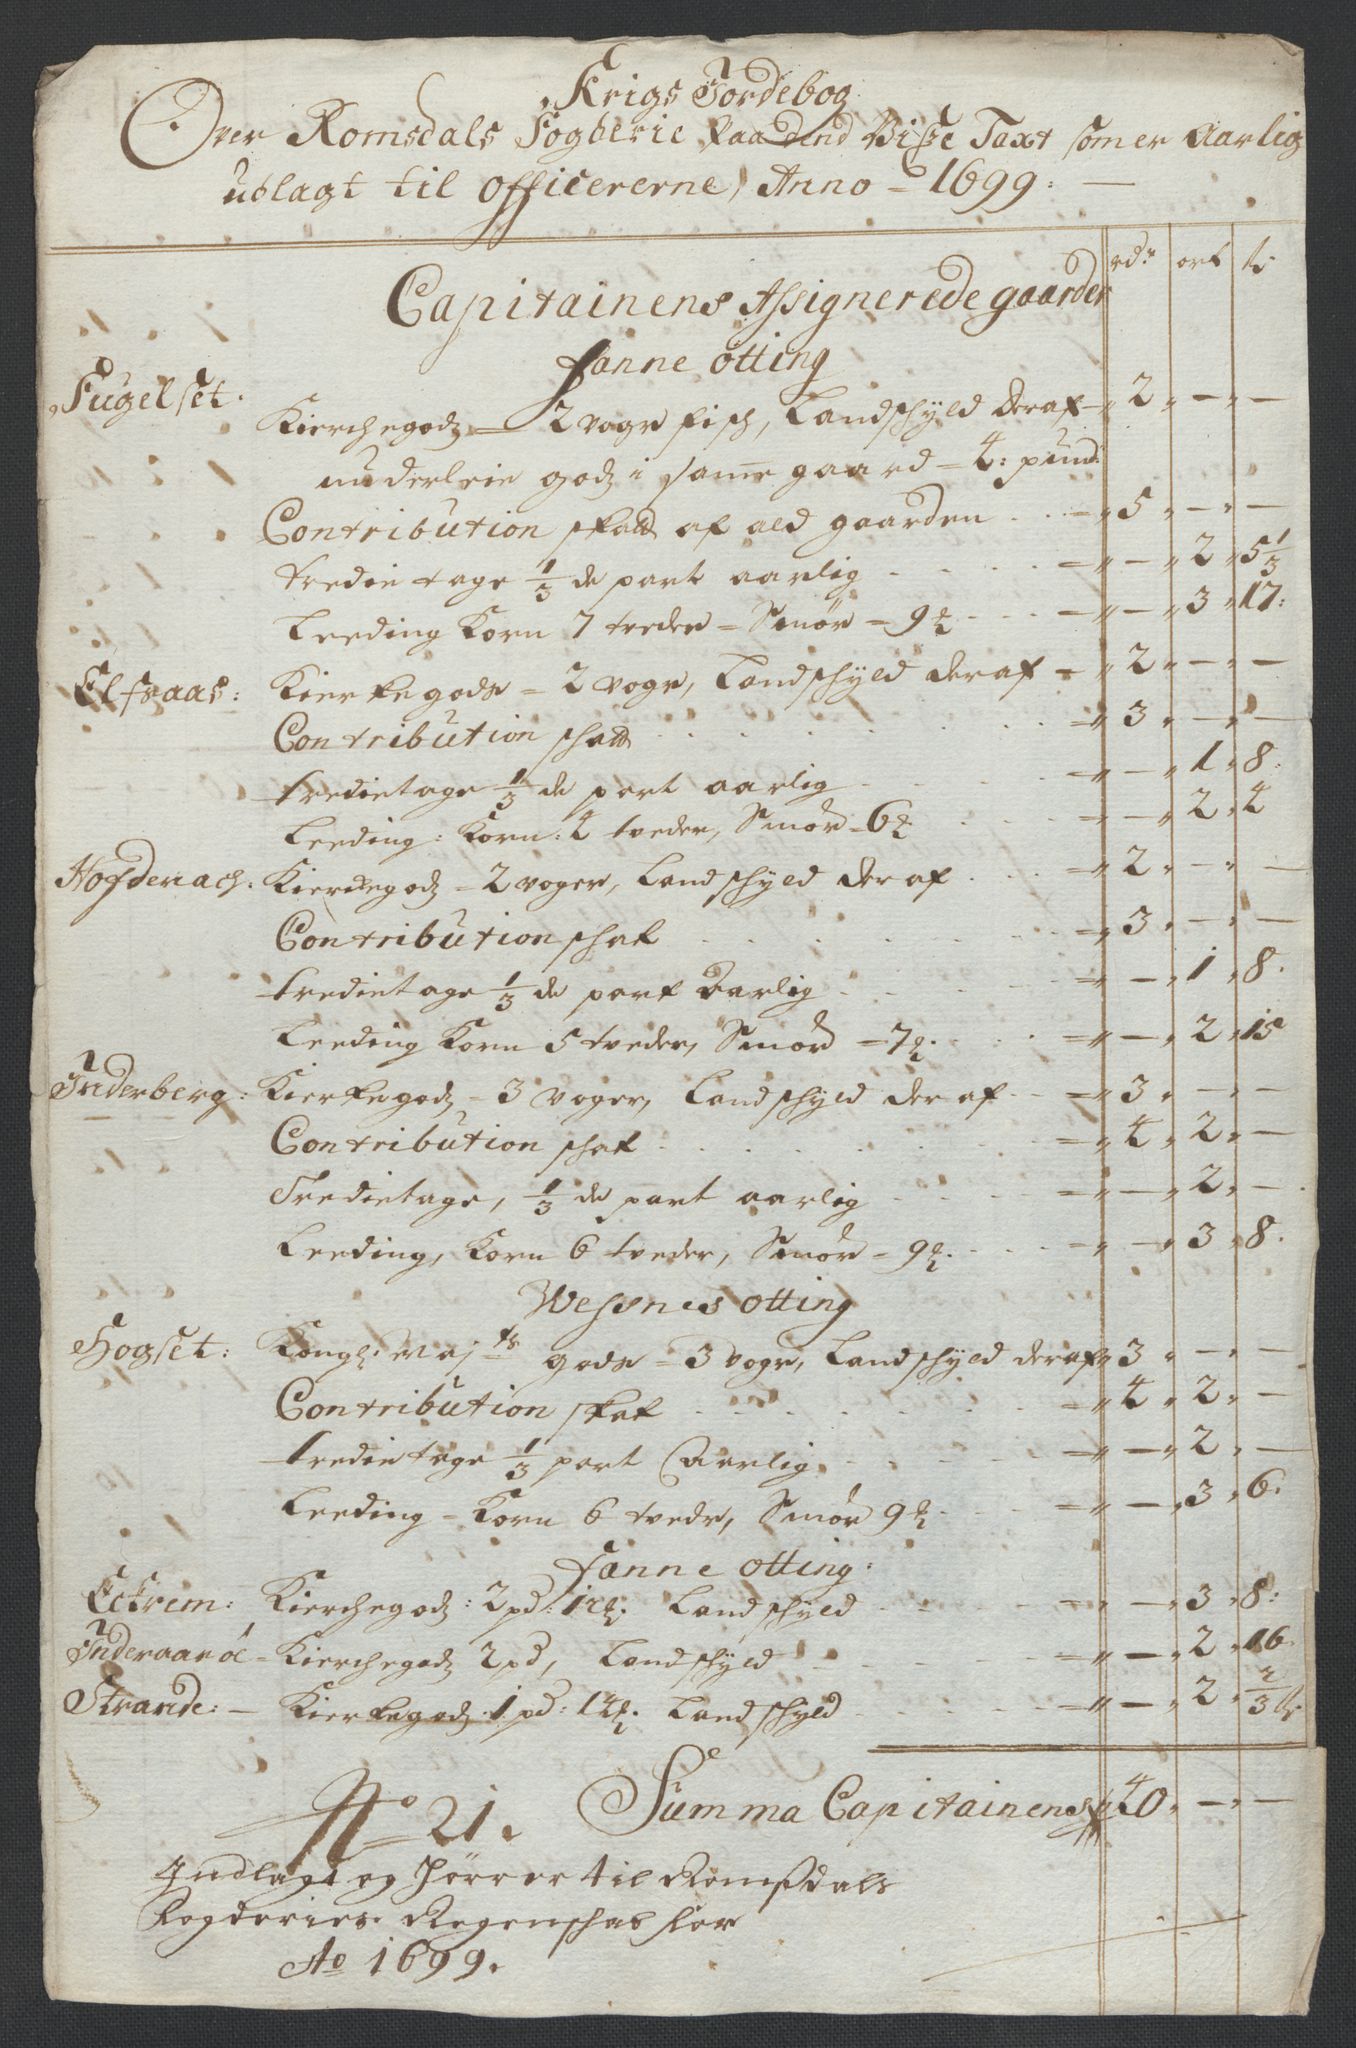 Krigs Jordebog
Over Romsdals Fogderie Paa dend Viße Taxt som er Aarlig
udlagt til officererne, Anno = 1699: —
rdr ort ß
Capitainens Assignerede gaarder
Fanne otting
Fugelset. Kierchegodz = 2 voger fisch, Landschyld deraf — 2 — —
underleie godz i samme gaard = 4: pund:
Contribution skatt af ald gaarden — 5 — —
tredie tage 1/3 de part aarlig — — 2 5 1/3
Leeding Korn 7 tveder = Smør = 9 ℔ — — 3 17:
Elfsaas: Kierkegods = 2 voger, Landschyld deraf = 2 — —
Contribution schatt — 3 — —
tredietage 1/3 de part aarlig — — 1 8:
Leeding: Korn: 4 tveder, Smør = 6 ℔ — — 2 4
Hofdenach: Kierkegodz = 2 voger, Landschyld deraf — 2 — —
Contribution schat — 3 — —
tredietage 1/3 de part Aarlig — — 1 8.
Leeding Korn 5 tveder, Smør = 7 ℔. — — 2 15
Inderberg: Kierkegodz = 3 voger, Landschyld deraf — 3 — —
Contribution schat — 4 2 —
Tredietage, 1/3 de part aarlig — — 2 —
Leeding, Korn 6 tveder, Smør = 9 ℔. — — 3 8.
Wessnes otting
Hogset: Kongl: Maj ts gods = 3 voger, Landschyld deraf 3 — —
Contribution skat — 4 2 —
tredietage 1/3 part Aarlig — — 2 —
Leeding = Korn 6 tveder, Smør 9 ℔ — — 3 6.
Fanne otting:
Eckrem: Kierchegodz: 2 pd: 12 ℔. Landschyld — — 3 8:
Inderaarøe = Kierchegodz 2 pd, Landschyld — — 2 16.
Strande: — Kierkegodz 1 pd: 12 ℔. Landschyld — — 2 2/3 ß.
No 21. Summa Capitainens 40 — —
Indlagt og hörrer til Romsdals
Fogderies Regenschab for
Ao 1699.